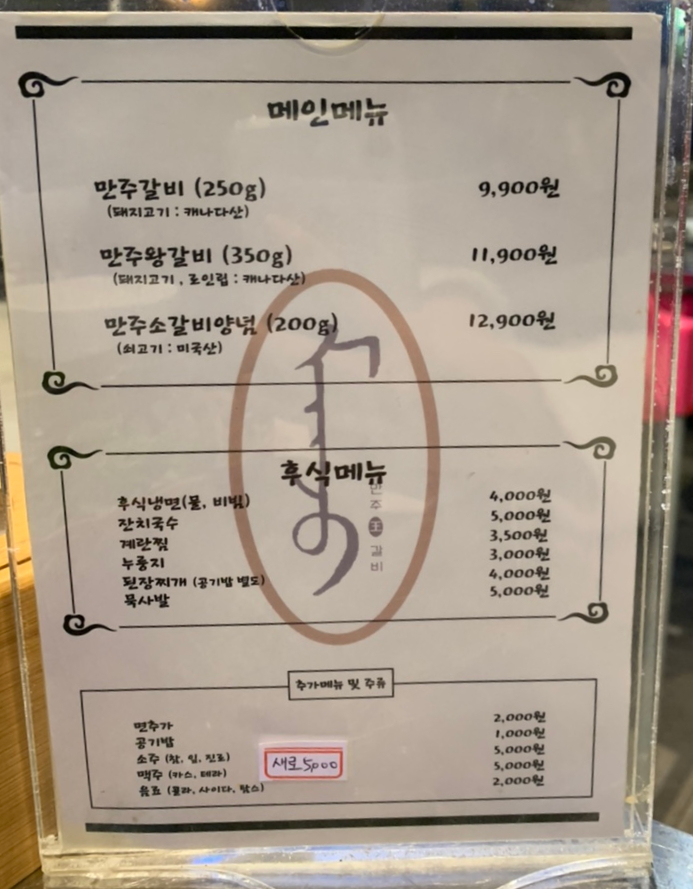 메인메뉴
만주갈비 (250g) 9,900원
(돼지고기 : 캐나다산)
만주왕갈비 (350g) 11,900원
(돼지고기 , 로인립 : 캐나다산)
만주소갈비양념 (200g) 12,900원
(쇠고기 : 미국산)
후식메뉴
후식냉면(물, 비빔) 4,000원
잔치국수 5,000원
계란찜 3,500원
누룽지 3,000원
된장찌개 (공기밥 별도) 4,000원
묵사발 5,000원
만주王갈비
추가메뉴 및 주류
면추가 2,000원
공기밥 1,000원
소주 (참, 잎, 진로) 5,000원
맥주 (카스, 테라) 5,000원
음료 (콜라, 사이다, 탐스) 2,000원
새로 5,000